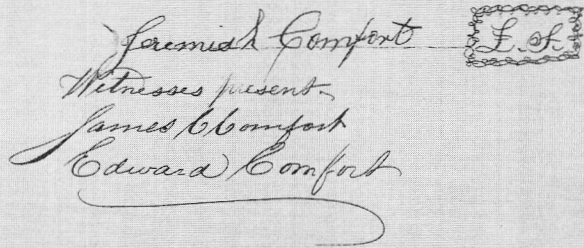 Jeremiah Comfort L. S.
Witnesses present
James C Comfort
Edward Comfort